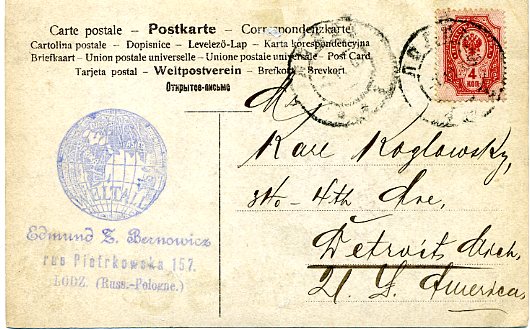 Carte postale – Postkarte – Correspondenzkarte
Cartolina postale - Dopisnice - Levelező-Lap - Karta korespondencyjna
Briefkaart - Union postale universelle - Unione postale universale - Post Card
Tarjeta postal - Weltpostverein - Brefkort - Brevkort.
Открытое письмо
4
КОП
Mr
Karl Koglowsky,
4th Ave,
Detroit Mich,
U. S. America
Edmund Z. Bernowicz
rue Piotrkowska 157.
ŁODZ. (Russ.-Pologne.)